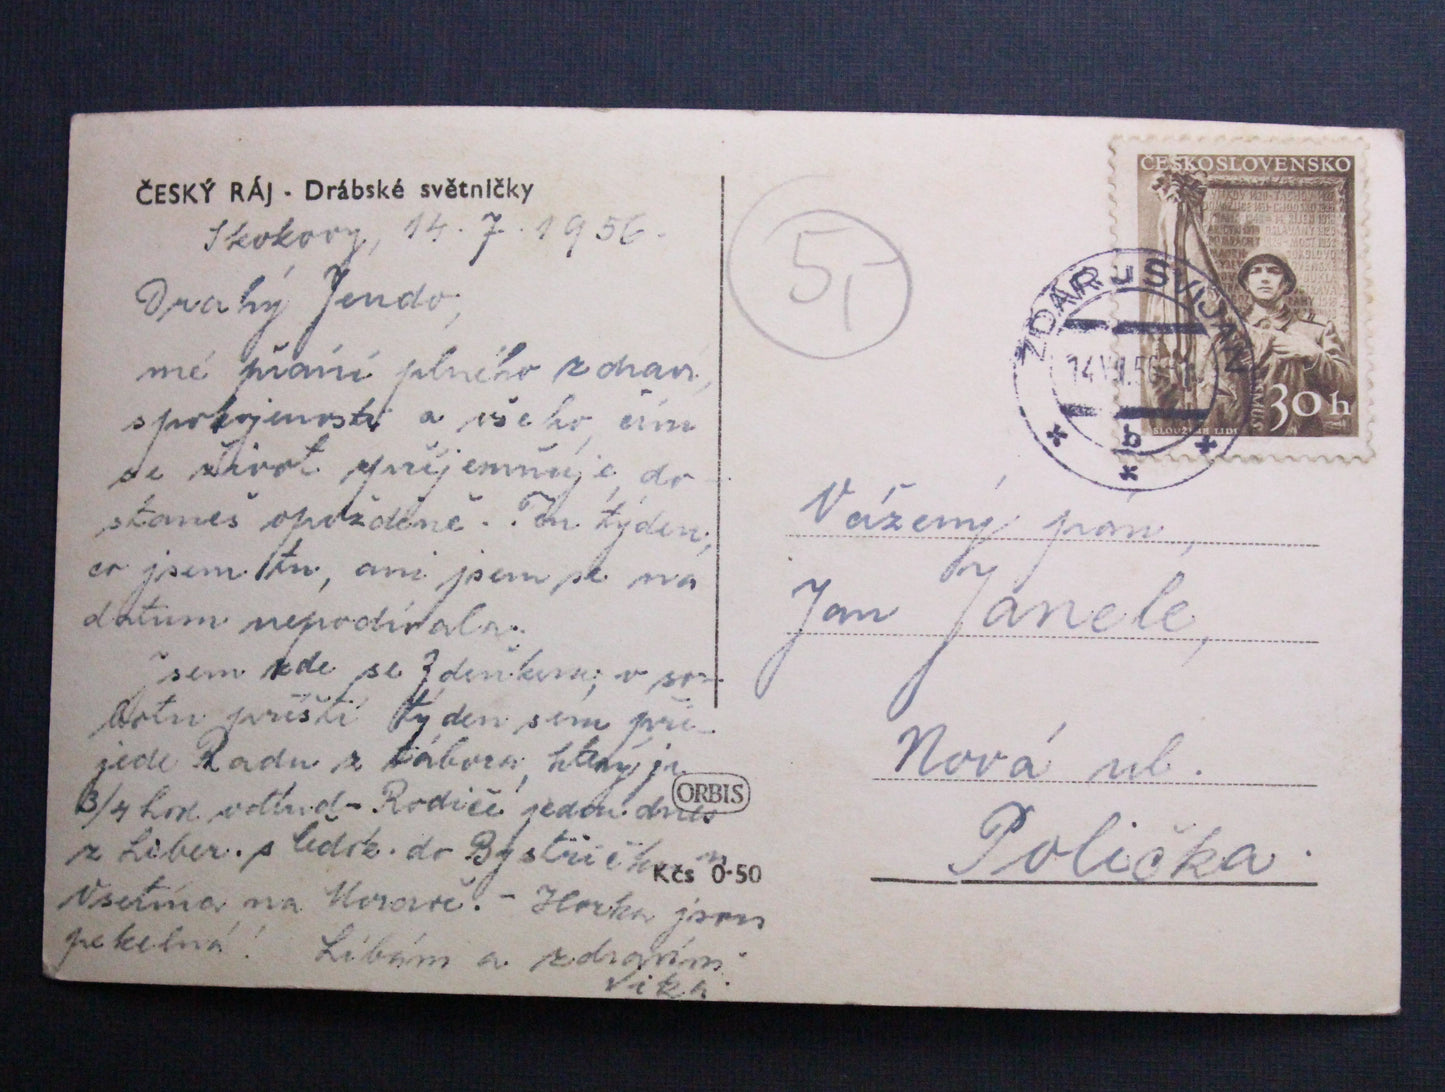 ČESKÝ RÁJ - Drábské světničky
Skokovy, 14.7.1956.
Drahý Jendo,
mé přání plného zdraví,
spokojenosti a všeho, čím
se život zpříjemňuje, do-
staneš opožděně. Ten týden,
co jsem tu, ani jsem se na
datum nepodívala.
Jsem zde se Zdeňkem, v so-
botu příští týden sem při-
jede Radu z tábora, který je
3/4 hod. Rodiče jedou dnes
z Liber. s do Bystřičky u
Vsetína na Moravě. - Horka jsou
pekelná! Líbám a zdravím
Vika.
ORBIS
Kčs 0·50
5,-
ČESKOSLOVENSKO
30 h
SLOUŽÍME LIDU
ŽDÁR u SVIJAN
14.VII.56
b
Vážený pán,
Jan Janele,
Nová ul.
Polička.